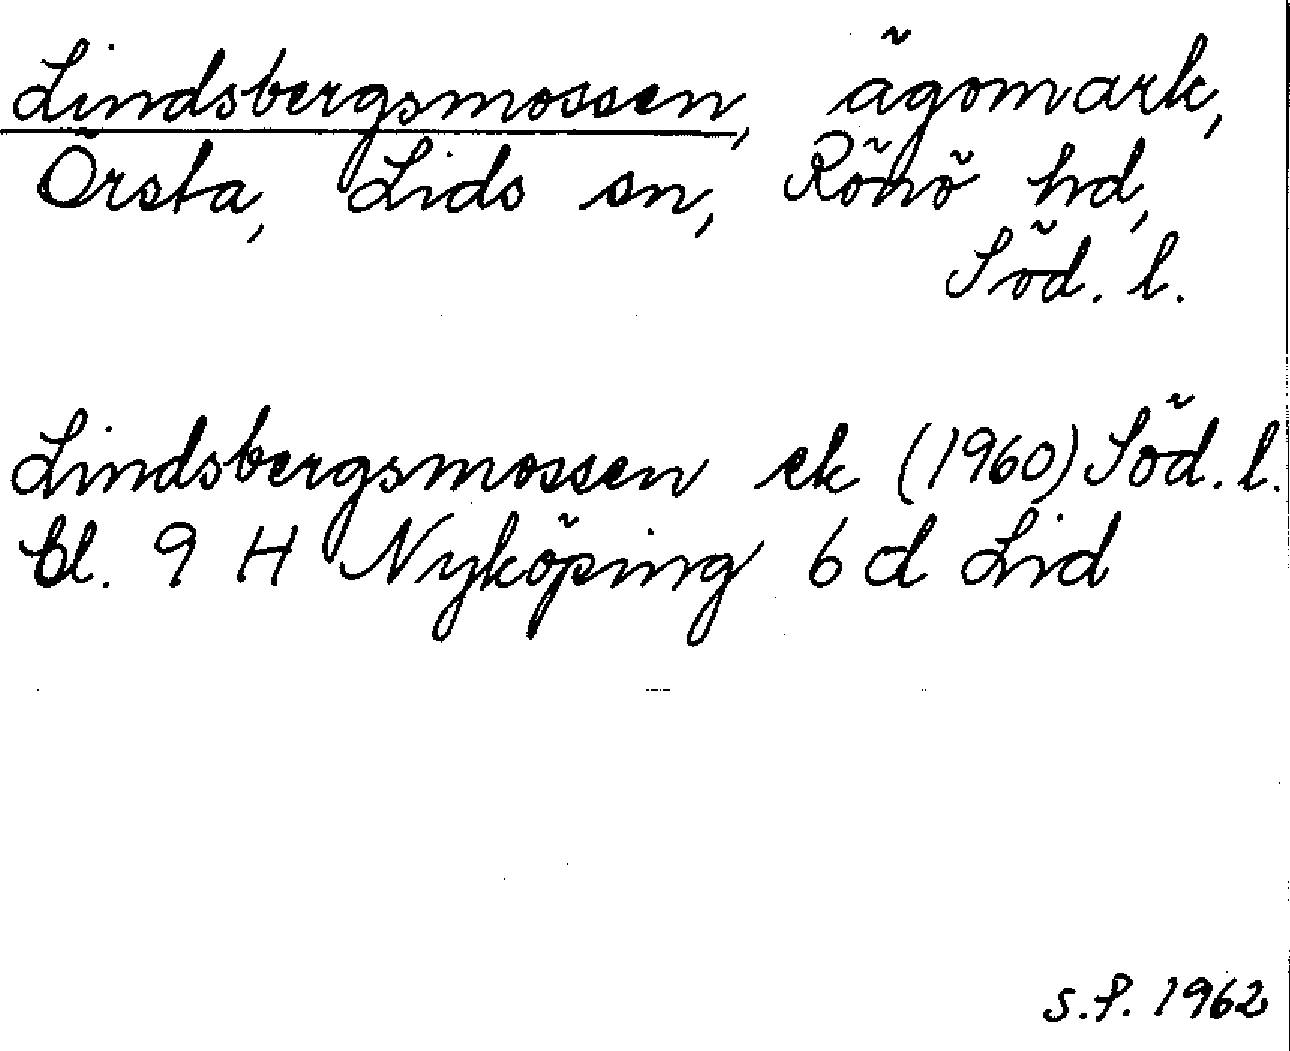 Lindsbergsmossen, ägomark,
Örsta, Lids sn, Rönö hd,
Söd. l.
Lindsbergsmossen ek (1960) Söd. l.
bl. 9 H Nyköping 6 d Lid
S.P. 1962